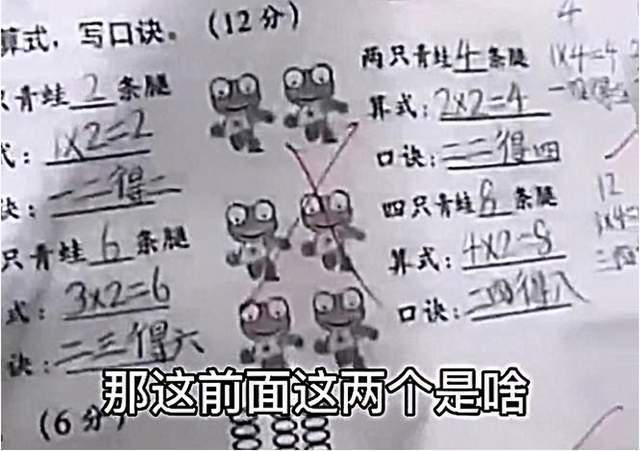 算式，写口诀。（12分）
只青蛙2条腿
式：1×2=2
诀：一二得二
只青蛙6条腿
式：3×2=6
诀：二三得六
两只青蛙4条腿
算式：2×2=4
口诀：二二得四
四只青蛙8条腿
算式：4×2=8
口诀：二四得八
4
1×4=4
12
3×4=
那这前面这两个是啥
（6分）